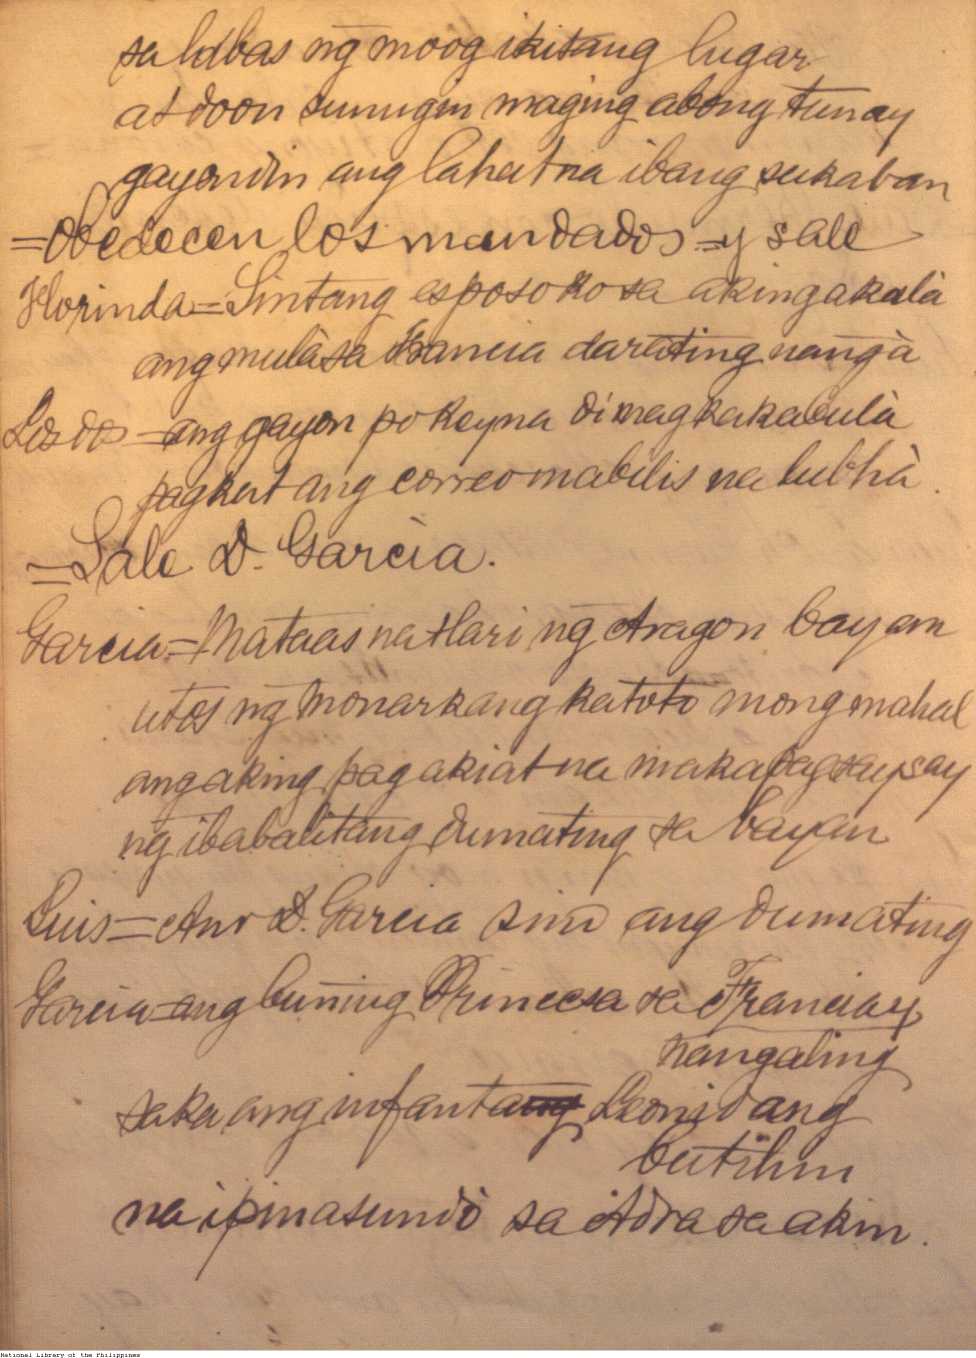 sa labas ng̃ moog ikitang lugar
at doon sunugin maging abong tunay
gayondin ang lahat na ibang sukaban
=Obedecen los mandados =y sale
Florinda=Sintang esposo ko sa aking akalà
ang mulà sa Francia darating nang̃à
Los dos =ang gayon po kayna di magkakabulà
pagkat ang correo mabilis na lubhà.
=Sale D. Garcia.
Garcia=Mataas na Hari ng̃ Aragon bayan
utos ng̃ monarkang katoto mong mahal
ang aking pag akiat na makapagsaysay
ng̃ ibabalitang dumating sa bayan
Luis=Ano D. Garcia sino ang dumating
Garcia=ang buning Princesa sa Franciay
nangaling
saka ang infanta Leonidang
butihin
na ipinasundò sa Adra sa akin.
National Library of the Philippines